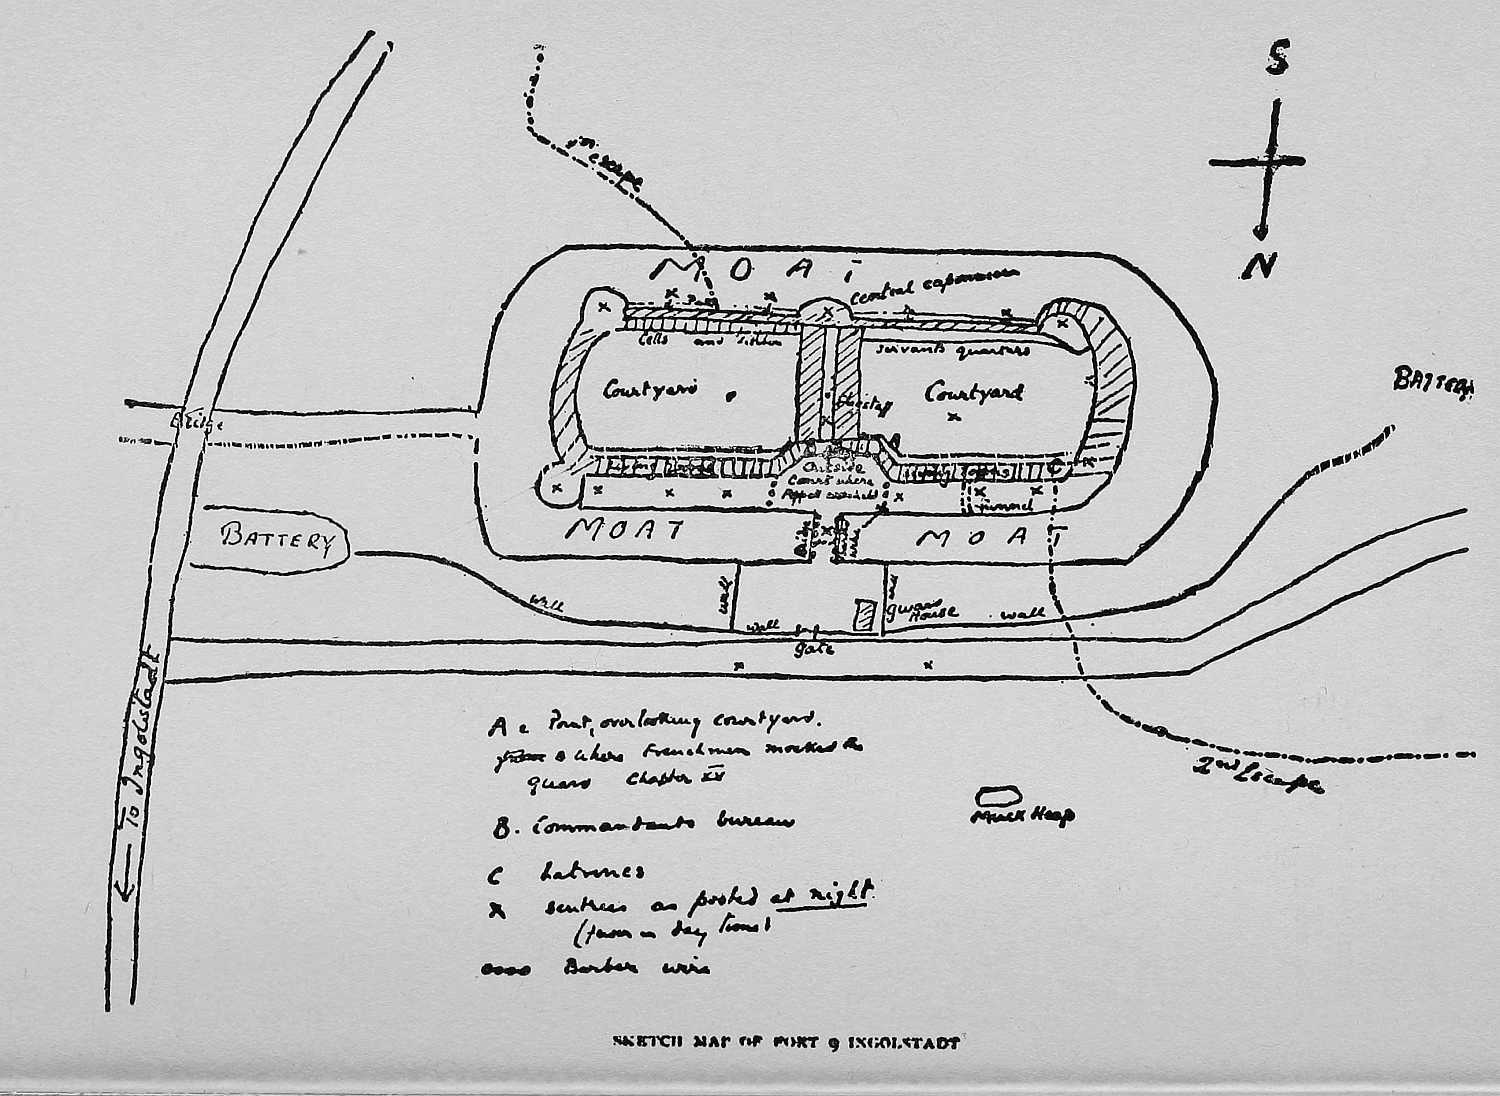 S
N
escape
MOAT
Central caponniere
Path
Cells and
servants quarters
Courtyard
Courtyard
BATTERY
Bridge
A
C
Outside
where
Appell
MOAT
Bridge
tunnel
MOAT
BATTERY
wall
wall
wall
guard
House
wall
wall
gate
To Ingolstadt
2nd Escape
Muck Heap
A = Point, overlooking courtyard.
where Frenchmen mocked the
guard Chapter XV
B. Commandants bureau
C Latrines
x sentries as posted at night.
(fewer in day time)
Barbed wire
SKETCH MAP OF FORT 9 INGOLSTADT